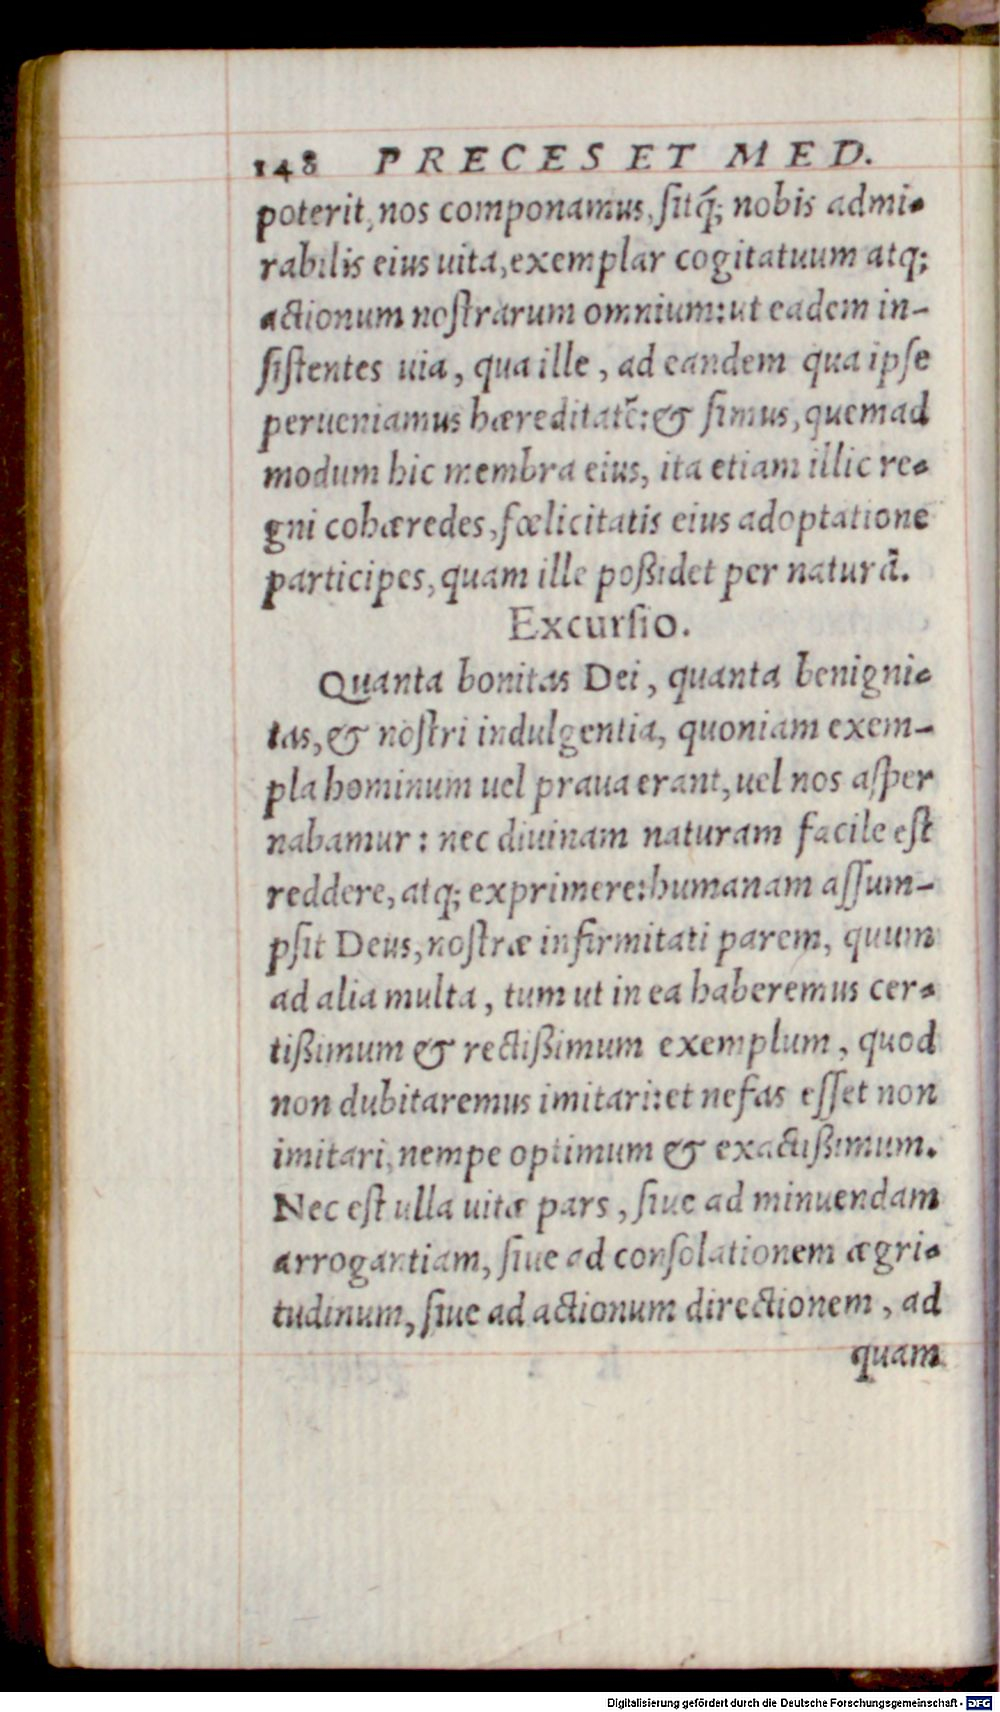 148 PRECES ET MED.
poterit, nos componamus, ſitq́; nobis admi-
rabilis eius uita, exemplar cogitatuum atq;
actionum noſtrarum omnium: ut eadem in-
ſiſtentes uia, qua ille, ad eandem qua ipſe
perueniamus hæreditatē: & ſimus, quemad
modum hic membra eius, ita etiam illic re-
gni cohæredes, fœlicitatis eius adoptatione
participes, quam ille poßidet per naturā.
Excurſio.
Quanta bonitas Dei, quanta benigni-
tas, & noſtri indulgentia, quoniam exem-
pla hominum uel praua erant, uel nos aſper
nabamur: nec diuinam naturam facile eſt
reddere, atq; exprimere: humanam aſſum-
pſit Deus, noſtræ infirmitati parem, quum
ad alia multa, tum ut in ea haberemus cer-
tißimum & rectißimum exemplum, quod
non dubitaremus imitari: et nefas eſſet non
imitari, nempe optimum & exactißimum.
Nec eſt ulla uitæ pars, ſiue ad minuendam
arrogantiam, ſiue ad conſolationem ægri-
tudinum, ſiue ad actionum directionem, ad
quam
Digitalisierung gefördert durch die Deutsche Forschungsgemeinschaft - DFG